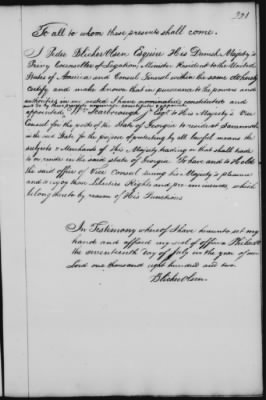 291
To all to whom these presents shall come.
I Peder Blicher Olsen Esquire His Danish Majesty's
Privy Counsellor of Legation, Minister Resident to the United
States of America and Consul General within the same do hereby
certify and make known that in pursuance to the powers and
authorities in me vested I have nominated constituted and
appointed, Wm Scarborough Jun Esqr to His Majesty's Vice
Consul for the State of Georgia to reside at Savannah
in the said State for the purpose of protecting by all lawful means the
subjects & Merchants of His Majesty trading or that shall trade
to or reside in the said state of Georgia. To have and to Hold
the said office of Vice Consul during his Majesty's pleasure
and enjoy those Liberties Rights and pre-eminences which
belong thereto by reason of His Functions
In Testimony whereof I have hereunto set my
hand and affixed my seal of office at Philada
the seventeenth day of July in the year of our
Lord one thousand eight hundred and two
Blicher Olsen.